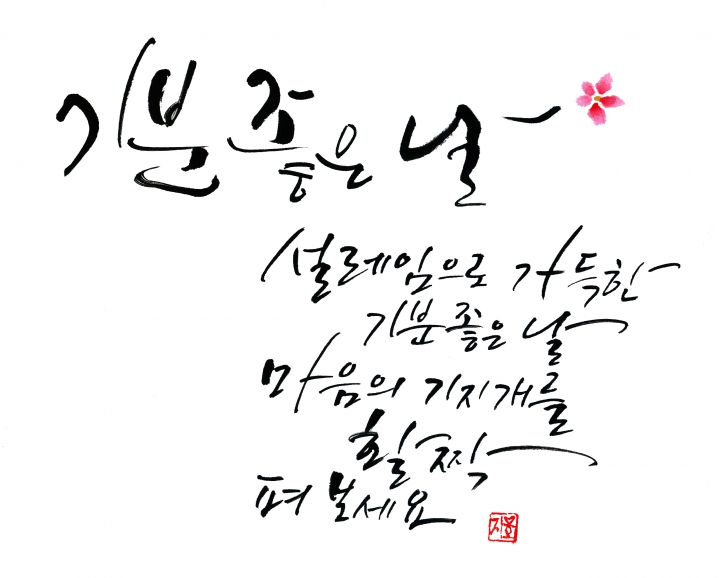 기분 좋은 날
설레임으로 가득한
기분좋은 날
마음의 기지개를
활짝
펴 보세요